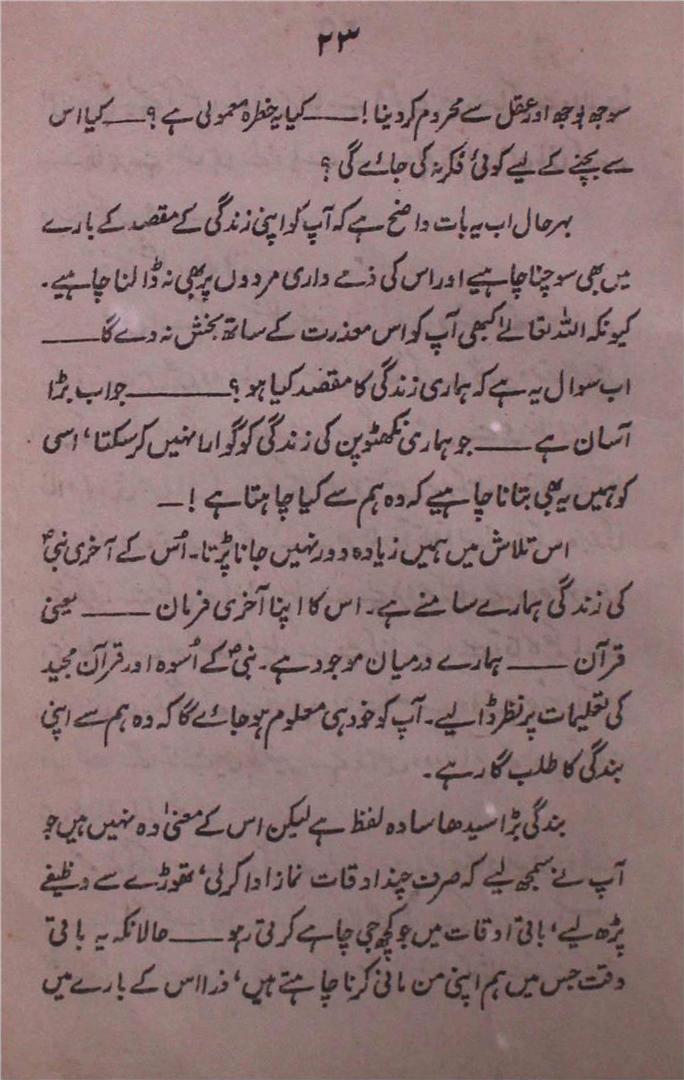 ۲۳
سوجھ بوجھ اور عقل سے محروم کر دینا! ——کیا یہ خطرہ معمولی ہے؟ ——کیا اس
سے بچنے کے لیے کوئی فکر نہ کی جائے گی؟
بہرحال اب یہ بات واضح ہے کہ آپ کو اپنی زندگی کے مقصد کے بارے
میں بھی سوچنا چاہیے اور اس کی ذمے داری مردوں پر بھی نہ ڈالنا چاہیے۔
کیونکہ اللہ تعالےٰ کبھی آپ کو اس معذرت کے ساتھ بخش نہ دے گا——
اب سوال یہ ہے کہ ہماری زندگی کا مقصد کیا ہو؟ ——جواب بڑا
آسان ہے ——جو ہماری نکھٹو پن کی زندگی کو گوارا نہیں کر سکتا، اسی
کو ہمیں یہ بھی بتانا چاہیے کہ وہ ہم سے کیا چاہتا ہے! —
اس تلاش میں ہمیں زیادہ دور نہیں جانا پڑتا۔ اُس کے آخری نبیؐ
کی زندگی ہمارے سامنے ہے۔ اس کا اپنا آخری فرمان —— یعنی
قرآن —— ہمارے درمیان موجود ہے۔ نبیؐ کے اُسوہ اور قرآن مجید
کی تعلیمات پر نظر ڈالیے۔ آپ کو خود ہی معلوم ہو جائے گا کہ وہ ہم سے اپنی
بندگی کا طلب گار ہے۔
بندگی بڑا سیدھا سادہ لفظ ہے لیکن اس کے معنیٰ وہ نہیں ہیں جو
آپ نے سمجھ لیے کہ صرف چند اوقات نماز ادا کر لی، تھوڑے سے وظیفے
پڑھ لیے، باقی اوقات میں جو کچھ جی چاہے کرتی رہو —— حالانکہ یہ باقی
وقت جس میں ہم اپنی من مانی کرنا چاہتے ہیں، ذرا اس کے بارے میں